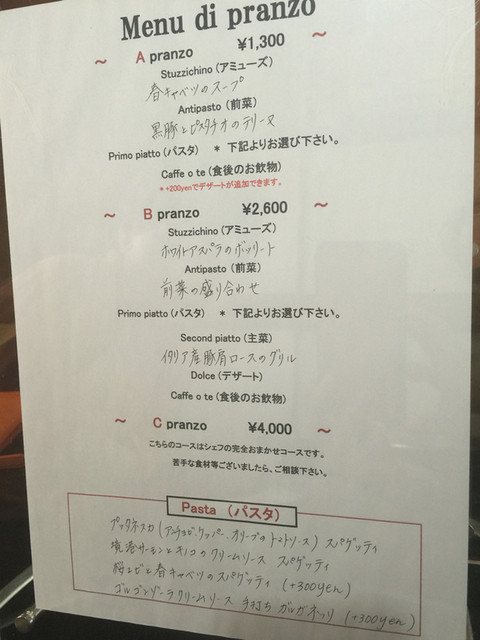 Menu di pranzo
～ A pranzo ¥1,300 ～
Stuzzichino (アミューズ)
春キャベツのスープ
Antipasto (前菜)
黒豚とピスタチオのテリーヌ
Primo piatto (パスタ) ＊ 下記よりお選び下さい。
Caffe o te (食後のお飲物)
＊+200yenでデザートが追加できます。
～ B pranzo ¥2,600 ～
Stuzzichino (アミューズ)
ホワイトアスパラのボッリート
Antipasto (前菜)
前菜の盛り合わせ
Primo piatto (パスタ) ＊ 下記よりお選び下さい。
Second piatto (主菜)
イタリア産豚肩ロースのグリル
Dolce (デザート)
Caffe o te (食後のお飲物)
～ C pranzo ¥4,000 ～
こちらのコースはシェフの完全おまかせコースです。
苦手な食材等ございましたら、ご相談下さい。
Pasta (パスタ)
プッタネスカ (アンチョビ、ケッパー、オリーブのトマトソース) スパゲッティ
境港サーモンとキノコのクリームソース スパゲッティ
桜エビと春キャベツのスパゲッティ (+300yen)
ゴルゴンゾーラクリームソース 手打ち ガルガネッリ (+300yen)